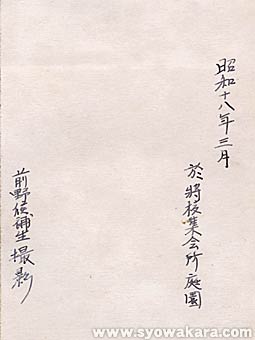 昭和十八年三月
於將校集会所庭園
前野候補生撮影
www.syowakara.com